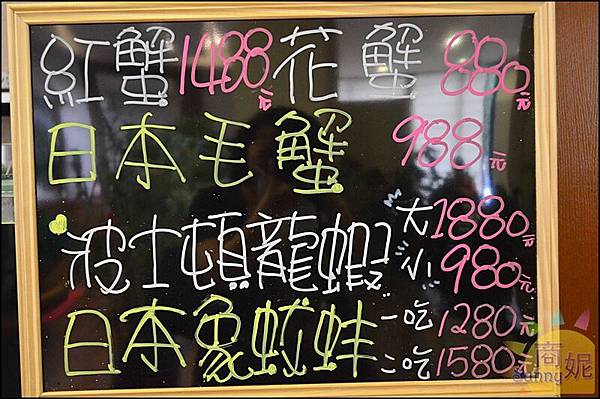 紅蟹1488元 花蟹 880元
日本毛蟹 988元
波士頓龍蝦 大1880元
小980元
日本象蚊蚌 一吃1280元
二吃1580元
商妮
Sunny